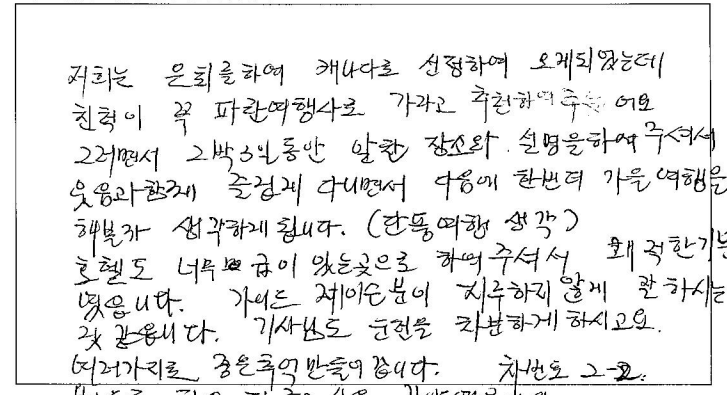 저희는 은퇴를하여 캐나다로 선정하여 오게되었는데
친척이 꼭 파란여행사로 가라고 추천하여주 어요
그러면서 2박3일동안 알찬 장소와 설명을하여주셔서
웃음과함께 즐겁게 다니면서 다음에 한번더 가을여행을
해볼까 생각하게됩니다. (단풍여행 생각)
호텔도 너무 급이 있는곳으로 하여주셔서 쾌적한기분
였습니다. 가이드 제이슨분이 지루하지않게 잘하시는
것 같습니다. 기사님도 운전을 차분하게 하시고요.
여러가지로 좋은추억만들어 갑니다. 차번호 2-2.